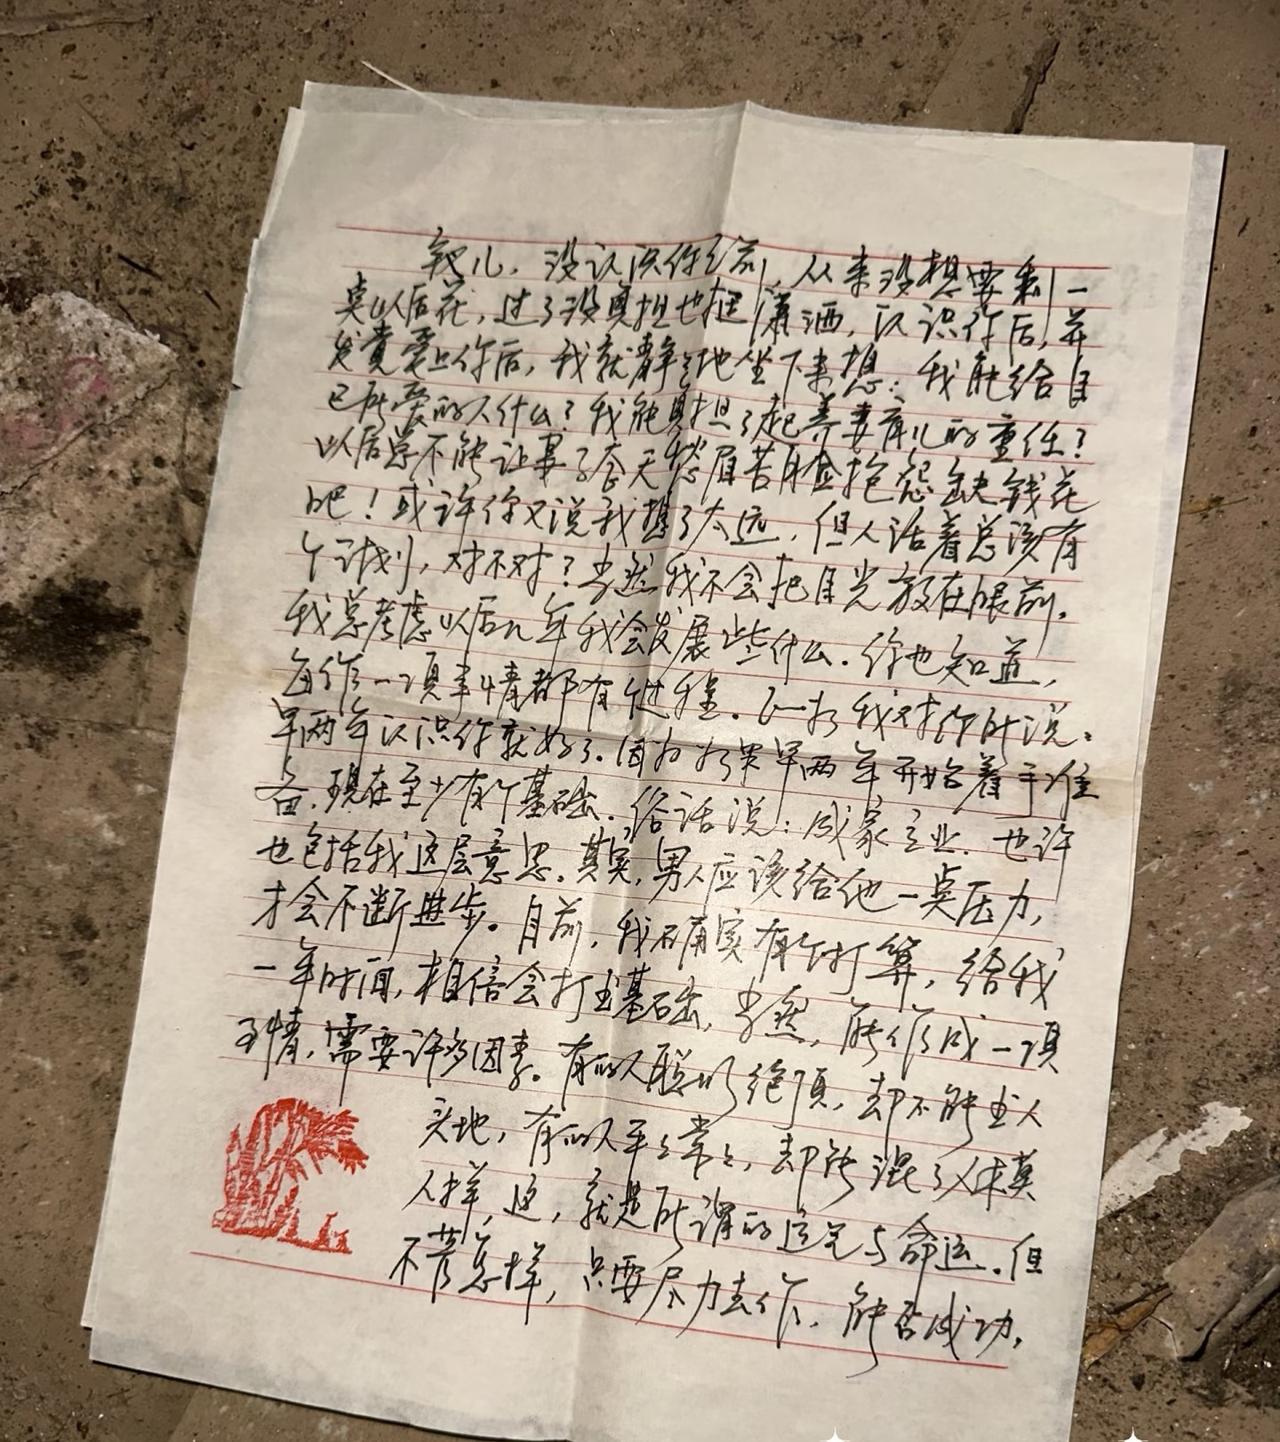 儿，没认识你之前，从来没想要剩一
点以后花，过了没负担也挺潇洒，认识你后，并
发觉爱上你后，我就静静地坐下来想：我能给自
己所爱的人什么？我能负担了起养妻育儿的重任？
以后总不能让妻子整天愁眉苦脸抱怨缺钱花
吧！或许你又说我想了太远，但人活着总该有
个计划，对不对？当然我不会把目光放在眼前。
我总考虑以后几年我会发展些什么。你也知道，
每作一项事情都有个过程。正如我对你所说：
早两年认识你就好了。因为如果早两年开始着手准
备，现在至少有个基础。俗话说：成家立业。也许
也包括我这层意思。其实，男人应该给他一点压力，
才会不断进步。目前，我确实有个打算，给我
一年时间，相信会打出基础，当然，能作成一项
事情，需要许多因素。有的人聪明绝顶，却不能出人
头地，有的人平平常常，却能混了人模
人样，这，就是所谓的运气与命运。但
不管怎样，只要尽力去作，能否成功，